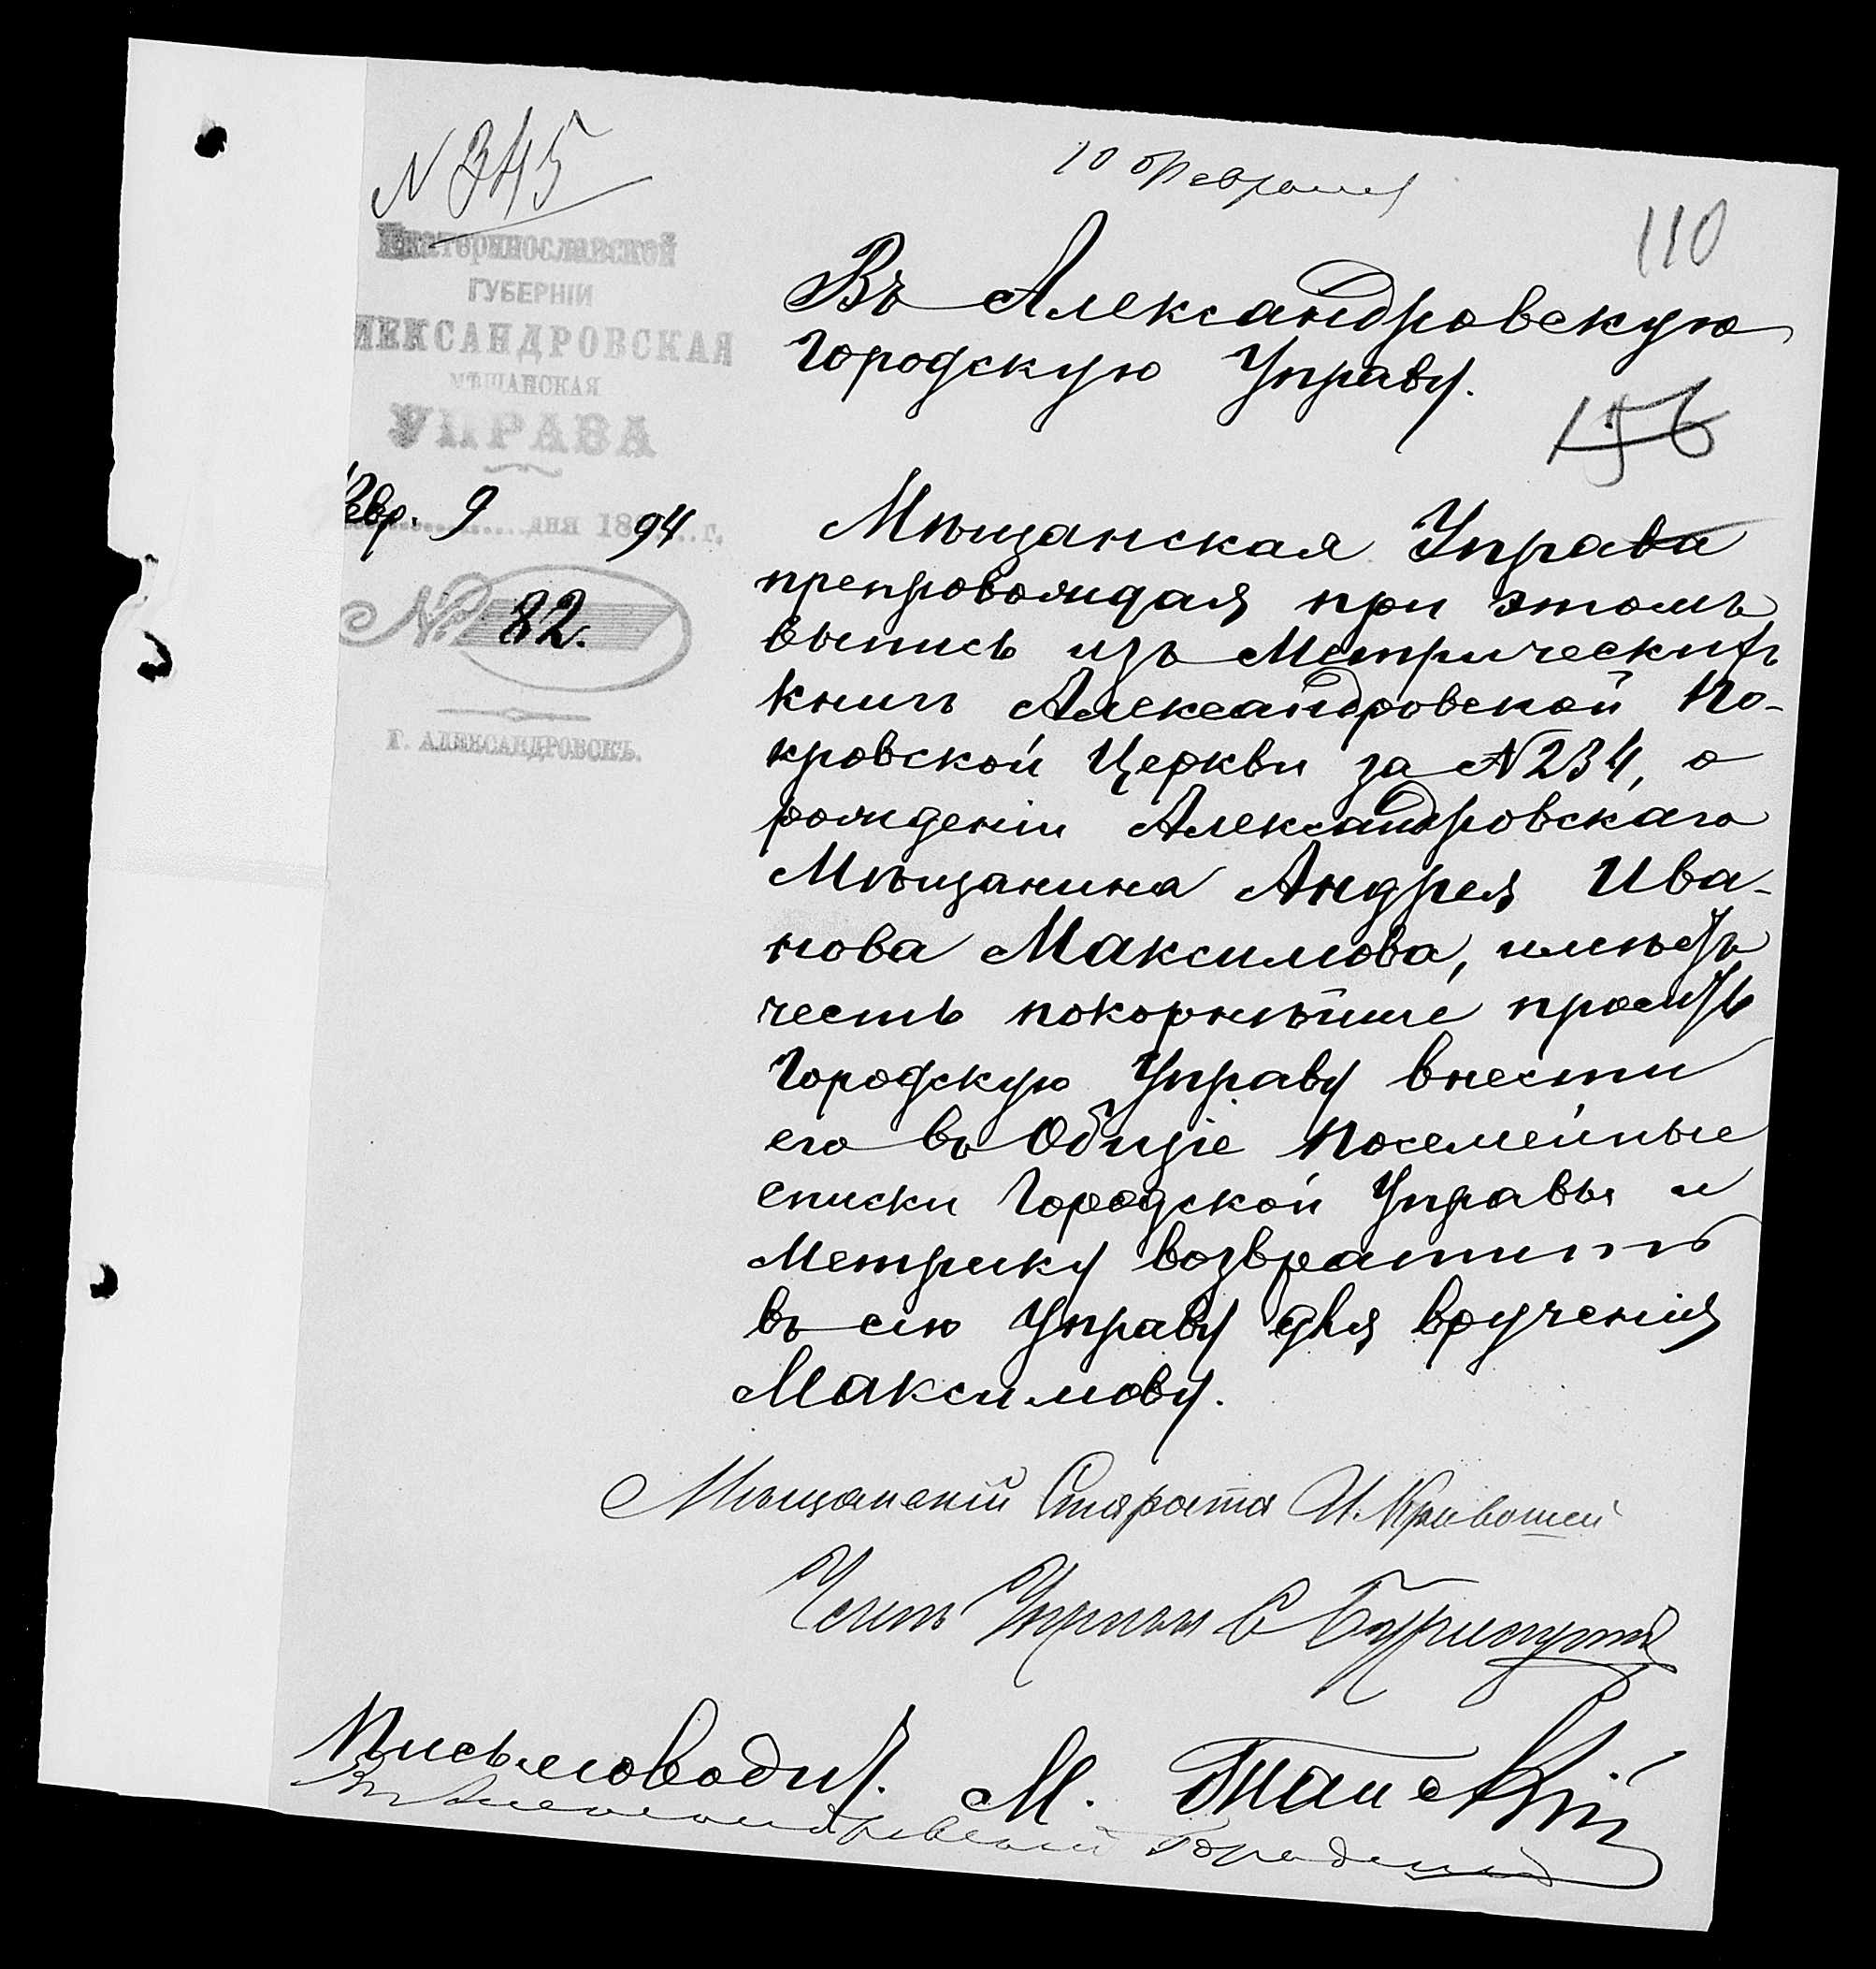 N 345
10 Февраля
110
Екатеринославской
ГУБЕРНІИ
АЛЕКСАНДРОВСКАЯ
МѢЩАНСКАЯ
УПРАВА
Февр. 9 дня 1894 г.
№ 82.
Г. АЛЕКСАНДРОВСКЪ.
Въ Александровскую
Городскую Управу.
156
Мѣщанская Управа
препровождая при этомъ
выпись изъ Метрическихъ
книгъ Александровской По-
кровской Церкви за N 234, о
рожденіи Александровскаго
Мѣщанина Андрея Ива-
нова Максимова, имѣетъ
честь покорнѣйше просить
Городскую Управу внести
его въ Общіе посемейные
списки Городской Управы и
Метрику возвратить
въ сію Управу для врученія
Максимову.
Мѣщанскій Староста И. Кривошей
Членъ Управы С
Письмоводит. М.
Въ Александровскую Городскую